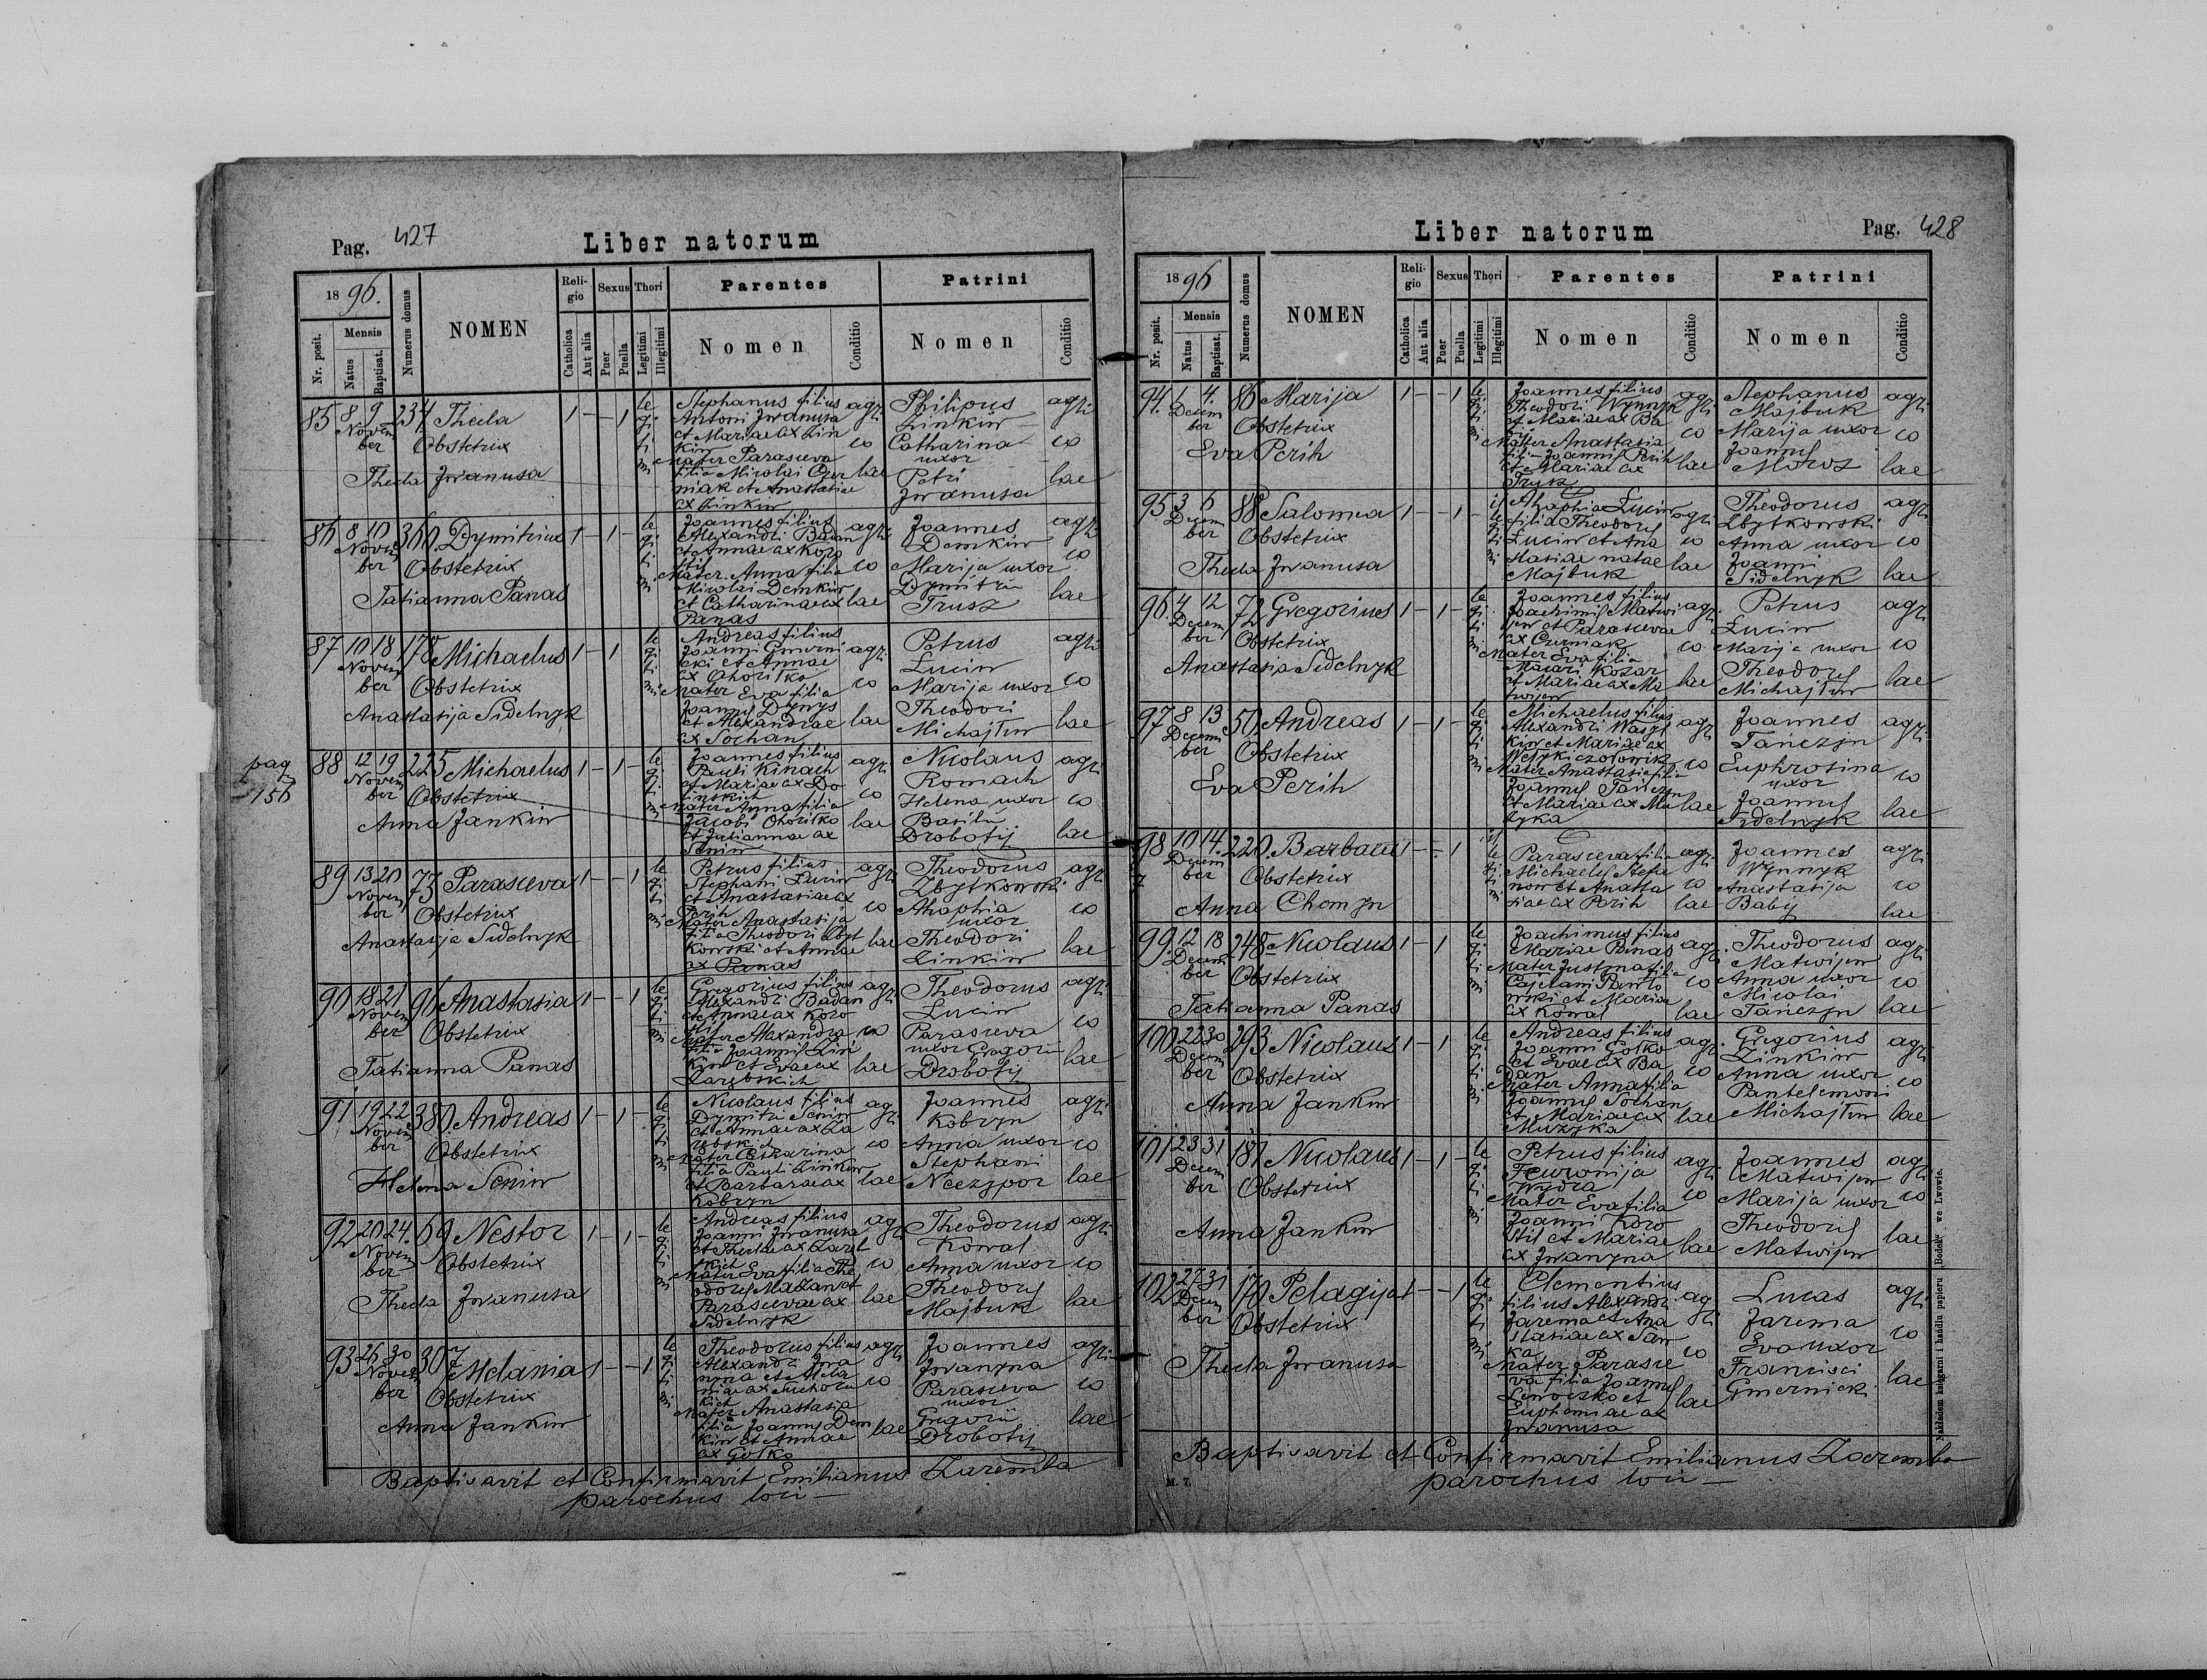 Pag. 427
Liber natorum
1896.
Nr. posit.
Mensis
Natus
Baptisat.
Numerus domus
NOMEN
Religio
Catholica
Aut alia
Sexus
Puer
Puella
Thori
Legitimi
Illegitimi
Parentes
Nomen
Conditio
Patrini
Nomen
Conditio
85 8 9 234 Thecla 1 — — 1
Novem
ber
Obstetrix
Thecla Iwanusa
legitimi
Stephanus filius
Antoni Iwanusa
et Mariae ax Zin
kiw
Mater Parasceva
filia Nicolai
niak et Anastasiae
ax Zinkiw
agri
co
lae
Philipus
Zinkiw
Catharina
uxor
Petri
Iwanusa
agri
co
lae
86 8 10 360 Dymitrius 1 — 1 —
Novem
ber
Obstetrix
Tatianna Panas
legitimi
Joannes filius
Alexandri Badan
et Annae ax Koro
stil
Mater Anna filia
Nicolai Demkiw
et Catharinae ax
Panas
agri
co
lae
Joannes
Demkiw
Marija uxor
Dymitrii
Trusz
agri
co
lae
87 10 18 178 Michaelus 1 — 1
Novem
ber
Obstetrix
Anastasija Sidelnyk
legitimi
Andreas filius
Joanni Gmerni
cki et Annae
ax Ohorilko
Mater Eva filia
Joannis Dynys
et Alexandrae
ax Sochan
agri
co
lae
Petrus
Luciw
Marija uxor
Theodori
Michajliw
agri
co
lae
pag
156
88 12 19 225 Michaelus 1 — 1 —
Novem
ber
Obstetrix
Anna Jankiw
legitimi
Joannes filius
Pauli Kinach
et Mariae ax Do
linskich
Mater Anna filia
Jacobi Ohorilko
et Juliannae ax
Seniw
agri
co
lae
Nicolaus
Romach
Helena uxor
Basilii
Drobotij
agri
co
lae
89 13 20 73 Parasceva 1 — — 1
Novem
ber
Obstetrix
Anastasija Sidelnyk
legitimi
Petrus filius
Stephani Luciw
et Anastasiae ax
Perih
Mater Anastasija
filia Theodori Zbyt
kowski et Annae
ax Panas
agri
co
lae
Theodorus
Zbytkowski
Ahaphia
uxor
Theodori
Zinkiw
agri
co
lae
90 18 21 96 Anastasia 1 — — 1
Novem
ber
Obstetrix
Tatianna Panas
legitimi
Gregorius filius
Alexandri Badan
et Annae ax Koro
stil
Mater Alexandra
filia Joannis Zin
kiw et Evae ax
Zarebskich
agri
co
lae
Theodorus
Luciw
Parasceva
uxor Gregorii
Drobotij
agri
co
lae
91 19 22 380 Andreas 1 — 1 —
Novem
ber
Obstetrix
Helena Seniw
legitimi
Nicolaus filius
Dymitri Seniw
et Annae ax Za
rebskich
Mater Catharina
filia Pauli Zinkiw
et Barbarae ax
Kobryn
agri
co
lae
Joannes
Kobryn
Anna uxor
Stephani
Neczypor
agri
co
lae
92 20 24. 69 Nestor 1 — 1 —
Novem
ber
Obstetrix
Thecla Iwanusa
legitimi
Andreas filius
Joanni Iwanusa
et Theclae ax Zareb
skich
Mater Eva filia The
odori Mazan et
Parascevae ax
Sidelnyk
agri
co
lae
Theodorus
Kowal
Anna uxor
Theodori
Majbuk
agri
co
lae
93 25 30 307 Melania 1 — — 1
Novem
ber
Obstetrix
Anna Jankiw
legitimi
Theodorus filius
Alexandri Iwa
nyna et Mela
niae ax
Mater Anastasia
filia Joannis Dem
kiw et Annae
ax Golko
agri
co
lae
Joannes
Iwanyna
Parasceva
uxor
Gregorii
Drobotij
agri
co
lae
Baptisavit et Confirmavit Emilianus Zaremba
parochus loci —
Liber natorum
Pag. 428
1896
Nr. posit.
Mensis
Natus
Baptisat.
Numerus domus
NOMEN
Religio
Catholica
Aut alia
Sexus
Puer
Puella
Thori
Legitimi
Illegitimi
Parentes
Nomen
Conditio
Patrini
Nomen
Conditio
94. 1 4. 86 Marija 1 — — 1
Decem
ber
Obstetrix
Eva Perih
legitimi
Joannes filius
Theodori Wynnyk
et Mariae ax Ba
bij
Mater Anastasia
filia Joannis Perih
et Mariae ax
Tryk
agri
co
lae
Stephanus
Majbuk
Marija uxor
Joannis
Moroz
agri
co
lae
95 3 6 88 Salomea 1 — — 1 —
Decem
ber
Obstetrix
Thecla Iwanusa
illegitimi
Ahaphia Luciw
filia Theodori
Luciw et Ana
stasiae natae
Majbuk
agri
co
lae
Theodorus
Zbytkowski
Anna uxor
Joanni
Sidelnyk
agri
co
lae
96. 4 12 72 Gregorius 1 — 1 —
Decem
ber
Obstetrix
Anastasia Sidelnyk
legitimi
Joannes filius
Joachimis Matwi
jew et Parascevae
ax Czerniak
Mater Eva filia
Macari Kozar
et Mariae ax Ma
twijew
agri
co
lae
Petrus
Luciw
Marija uxor
Theodori
Michajliw
agri
co
lae
97 8 13 50 Andreas 1 — 1 —
Decem
ber
Obstetrix
Eva Perih
legitimi
Michaelus filius
Alexandri Wasyl
kiw et Mariae ax
Mater Anastasia filia
Joannis Tanczyn
et Mariae ax Mu
zyka
agri
co
lae
Joannes
Tańczyn
Euphrosina
uxor
Joannis
Sidelnyk
agri
co
lae
98 10 14. 220. Barbara 1 — — 1
Decem
ber
Obstetrix
Anna Chomyn
illegitimi
Parasceva filia
Michaelis Stefa
now et Anasta
siae ax Perih
agri
co
lae
Joannes
Wynnyk
Anastasija
Babij
agri
co
lae
99. 12 18 248 Nicolaus 1 — 1
Decem
ber
Obstetrix
Tatianna Panas
legitimi
Joachimus filius
Mariae Panas
Mater Justyna filia
Cajetani Pawlo
wski et Mariae
ax Kowal
agri
co
lae
Theodorus
Matwijew
Anna uxor
Nicolai
Tańczyn
agri
co
lae
100 22 30 293 Nicolaus 1 — 1
Decem
ber
Obstetrix
Anna Jankiw
legitimi
Andreas filius
Joanni Golko
et Evae ax Ba
dan
Mater Anna filia
Joannis Sochan
et Mariae ax
Muzyka
agri
co
lae
Gregorius
Zinkiw
Anna uxor
Pantelemoni
Michajliw
agri
co
lae
101 23 31 187 Nicolaus 1 — 1 —
Decem
ber
Obstetrix
Anna Jankiw
legitimi
Petrus filius
Fewronija
Wydra
Mater Eva filia
Joanni Koro
stil et Mariae
ax Iwanyna
agri
co
lae
Joannes
Matwijew
Marija uxor
Theodori
Matwijew
agri
co
lae
102 27 31 170 Pelagija 1 — — 1
Decem
ber
Obstetrix
Thecla Iwanusa
legitimi
Clementius
filius Alexandri
Jarema et Ana
stasiae ax Saw
ka
Mater Parasce
va filia Joannis
Lewoczko et
Euphemiae ax
Iwanusa
agri
co
lae
Lucas
Jarema
Eva uxor
Francisci
Gmernicki
agri
co
lae
Baptisavit et Confirmavit Emilianus Zaremba
parochus loci —
M. 7.
Nakładem księgarni i handlu papieru „Bodek" we Lwowie.